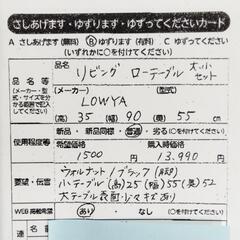 さしあげます・ゆずります・ゆずってくださいカード
A さしあげます（無料） Ⓑ ゆずります（有料） C ゆずってください
（いずれかに○を付けてください）
品名等
（メーカー・型式・サイズを分かる範囲で記入してください）
リビング ローテーブル 大・小セット
（メーカー） （型式）
LOWYA
（高） 35 （幅） 90 （奥） 55 cm
使用程度等
新品・新品同様・普通・劣る（○を付けてください）
希望価格 購入時価格
1500 円 13.990 円
要望・伝言
ウォルナット/ブラック（脚）
小テーブル（高）25（幅）55（奥）52
大テーブル表面に少々キズあり
WEB掲載希望
あり ・ なし （○を付けてください）